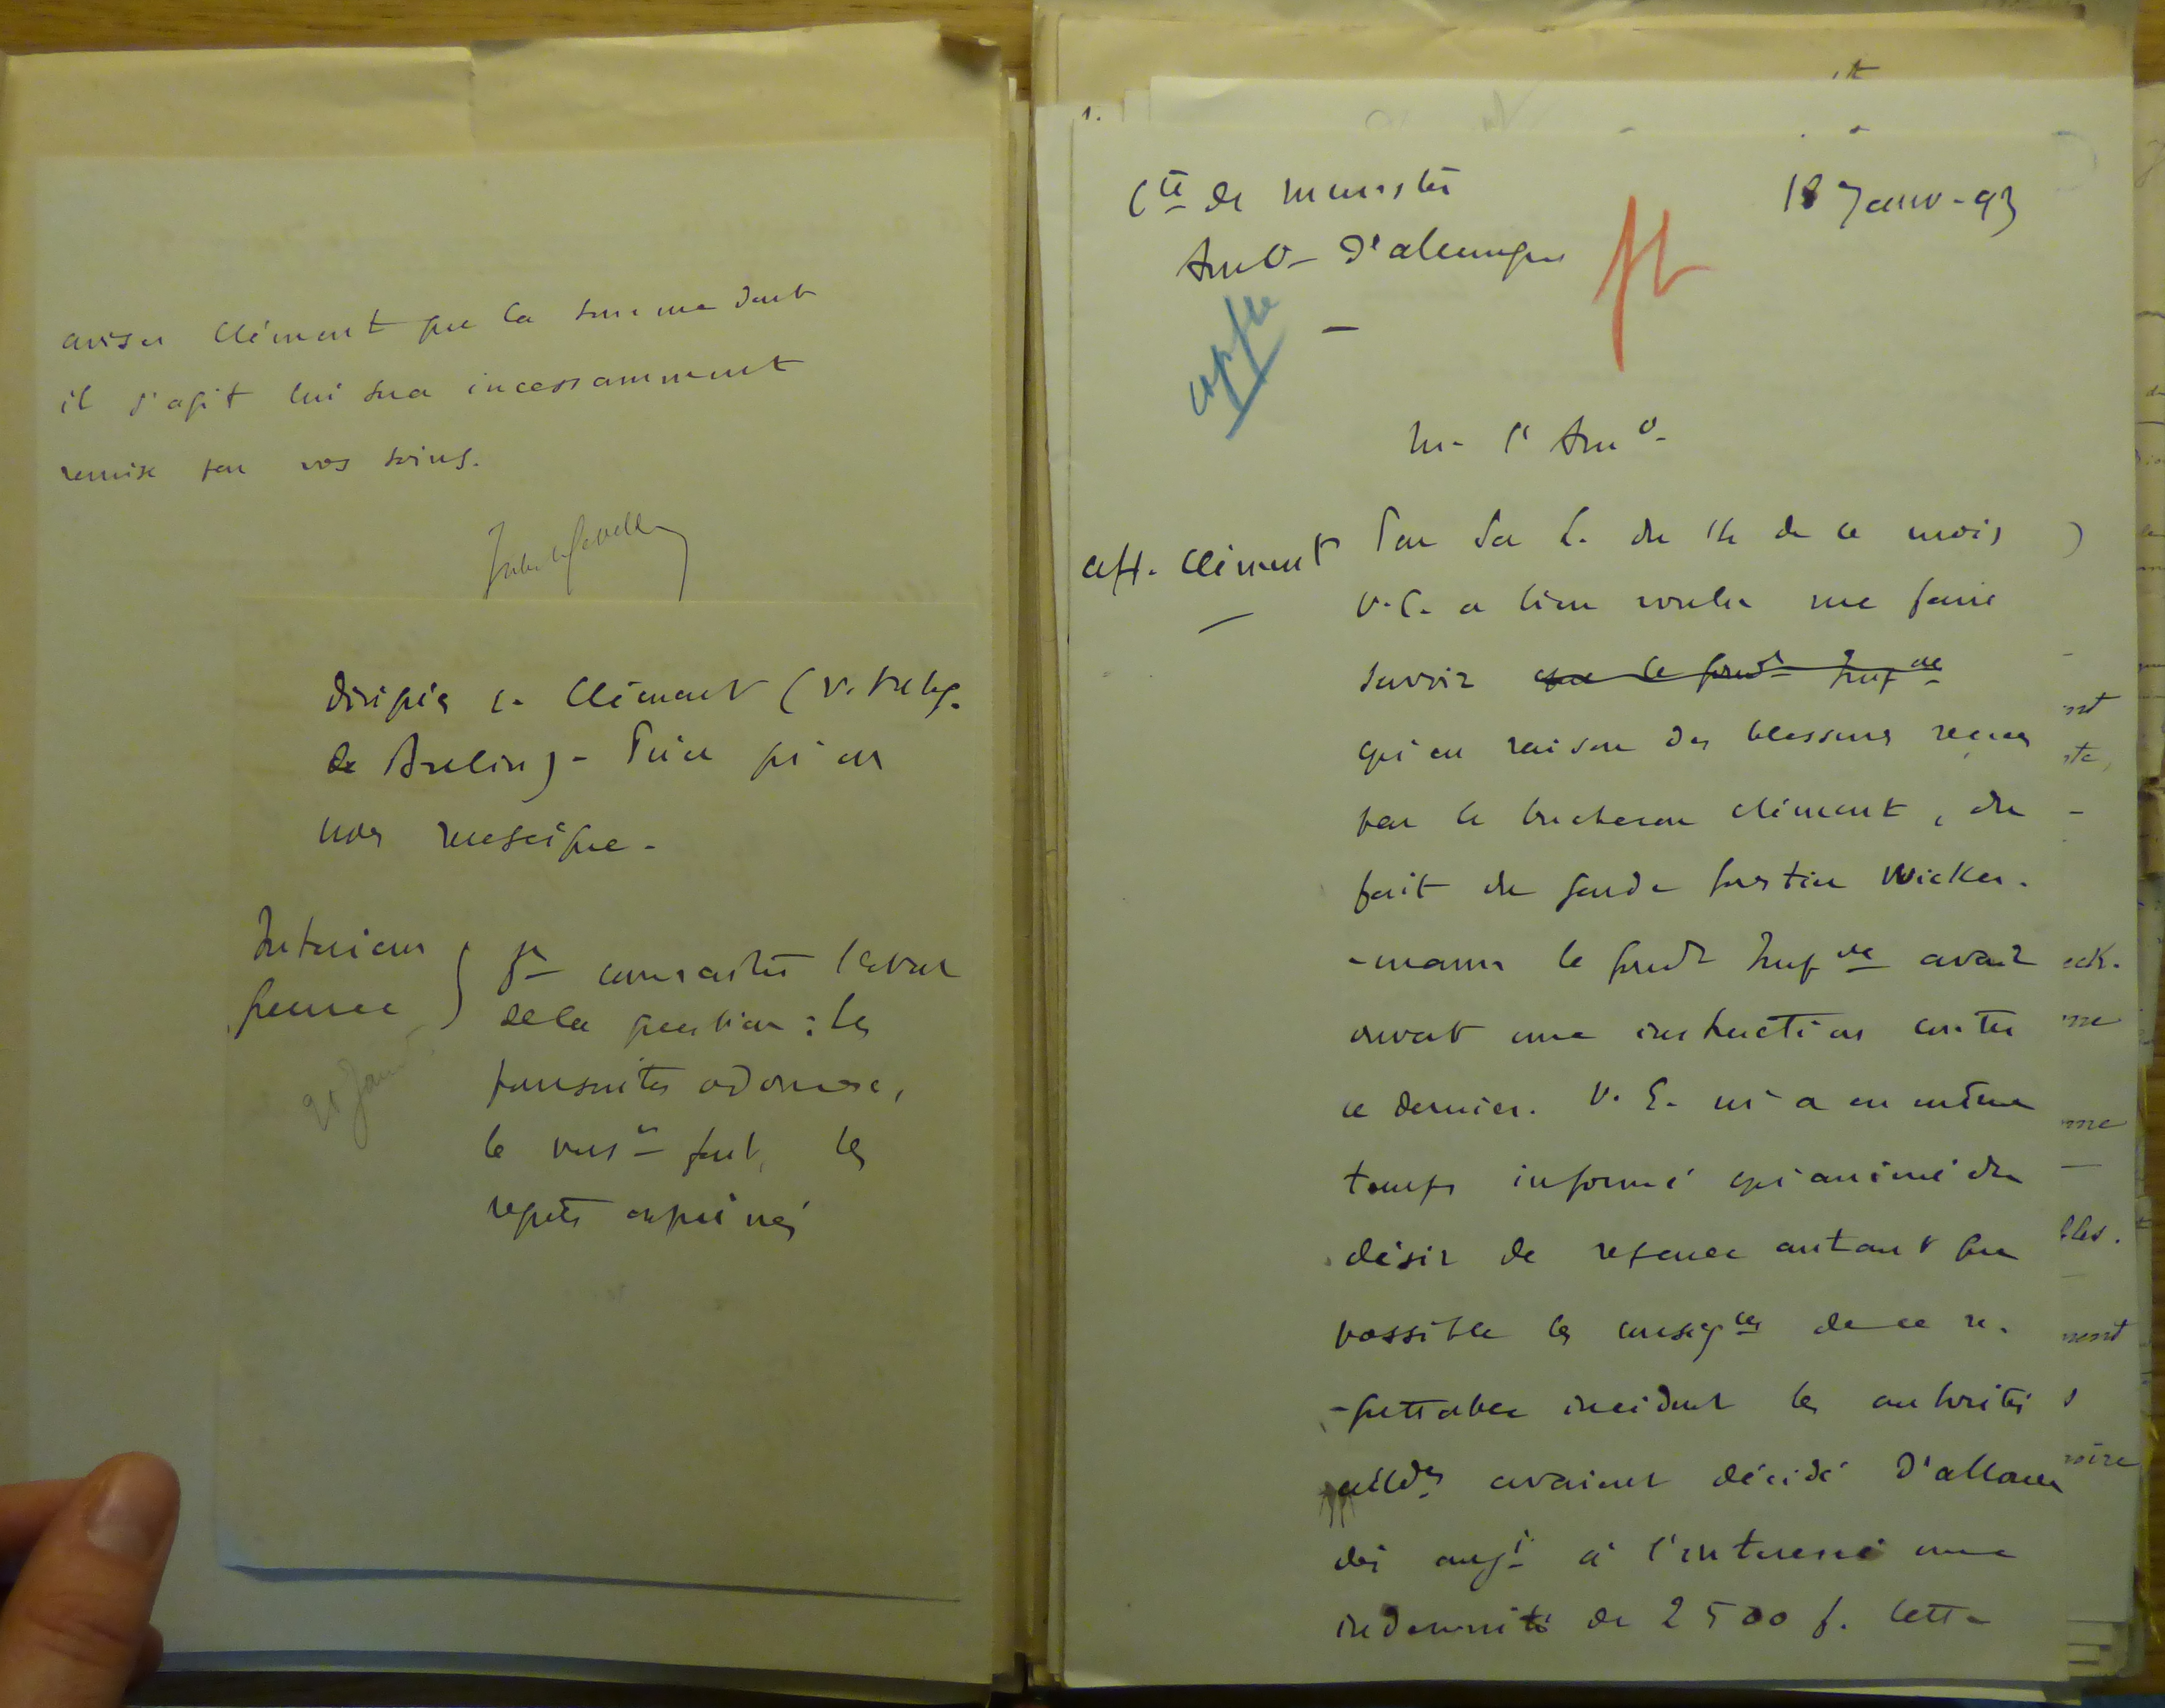 aviser Clément que la somme dont
il s'agit lui sera incessamment
remise par vos soins.
Clément (v. télég.
de Berlin) - Prier qu'on
nous renseigne -
Intérieur
guerre
20 Janv
connaître l'état
de la question : les
poursuites
le vers^t fait, les
regrets exprimés
C^te de Munster
Amb- d'allemagne
18 Janv- 93
copie
M- l'Amb-
aff. Clément
Par sa L. du 14 de ce mois
V.E. a bien voulu me faire
savoir que le gouv^t
qu'en raison des blessures reçues
par le bucheron Clément, du
fait du garde forestier Wicker-
-mann le gouv^t avait
ouvert une instruction contre
ce dernier. V. E. m'a en même
temps informé qu'animé du
désir de réparer autant que
possible les conséq^ces de ce re-
-grettable incident les autorités
alld^es avaient décidé d'allouer
dès auj^i à l'intéressé une
indemnité de 2500 f. Cette